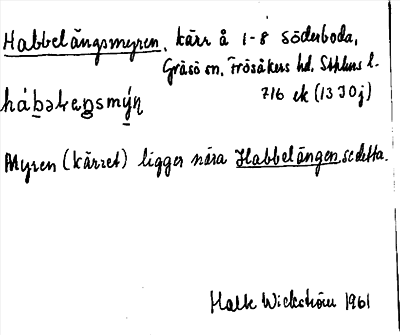 Habbelängsmyren, kärr å 1-8 Söderboda,
Gräsö sn, Frösåkers hd, Sthlms l.
716 ek (13 J 0 j)
Myren (kärret) ligger nära Habbelängen, se detta.
Wickström 1961